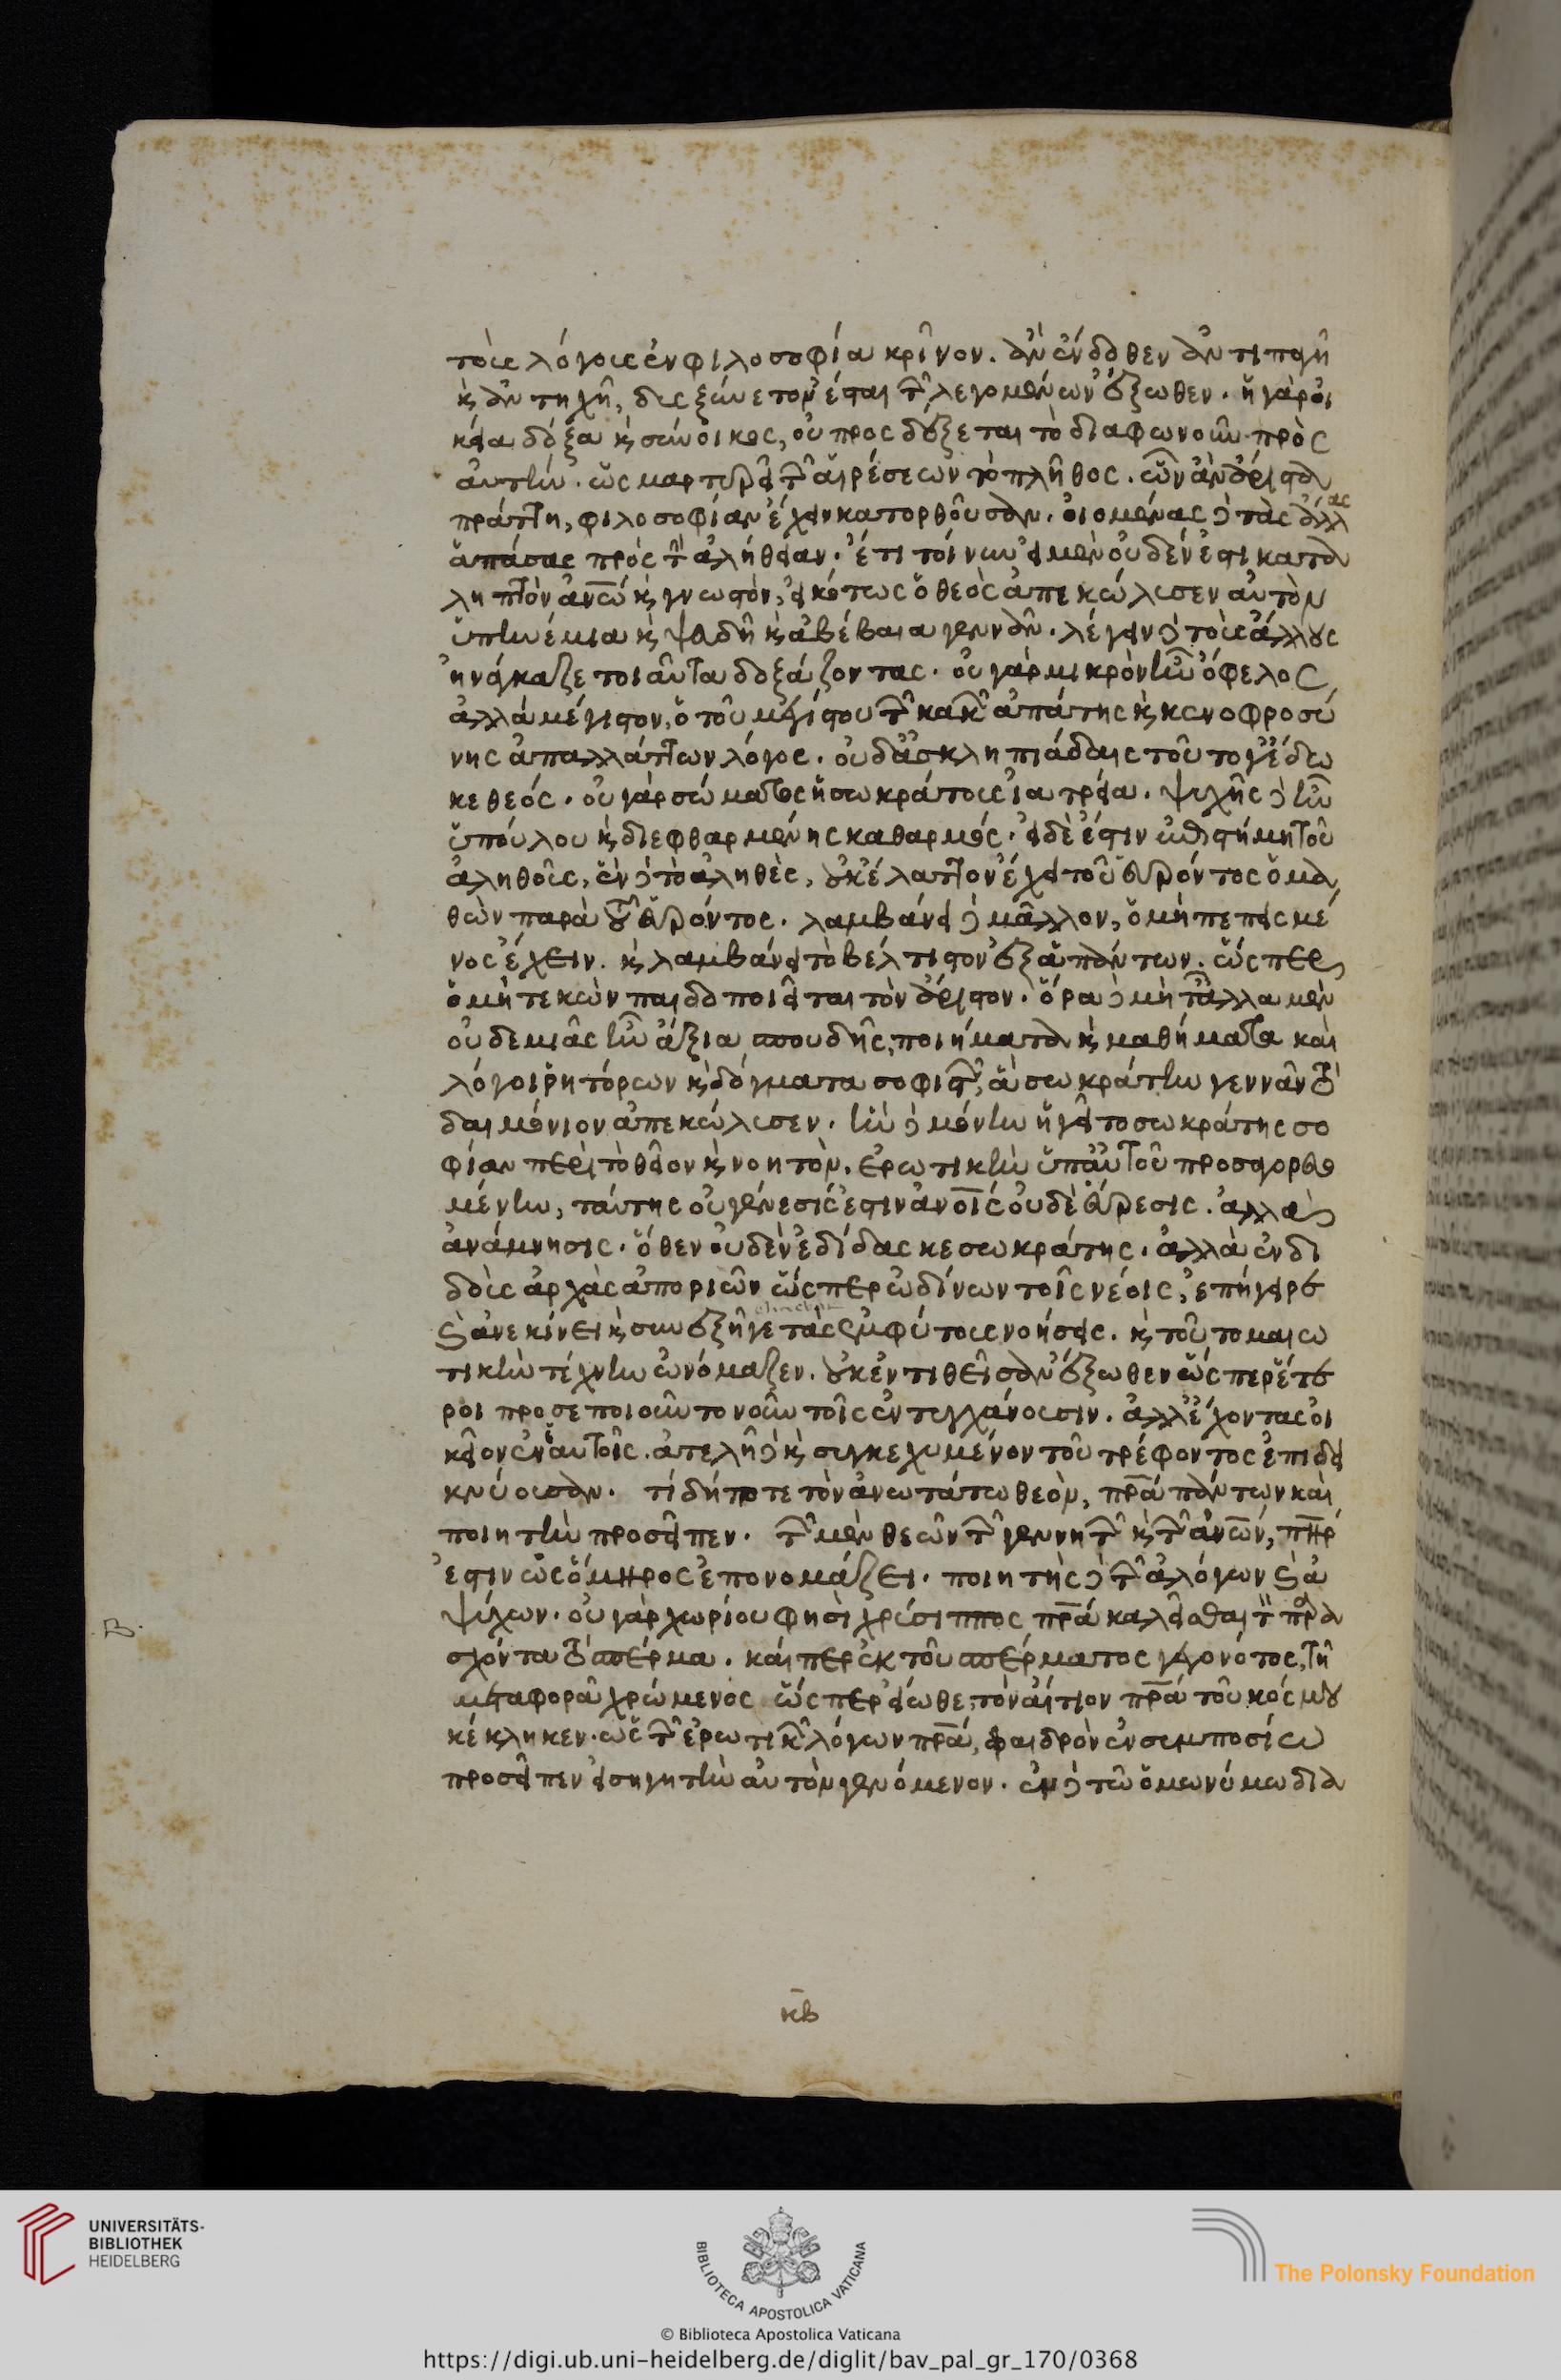 τοὺς λόγους ἐν φιλοσοφία κρῖνον. ἂν ἔνδοθεν ἀντιπαγῆ
κ̀ ἀντηχῆ, δυσξύνετον ἔσται τῶν λεγομένων ἔξωθεν. ἡ γὰρ οἰ
κεία δόξα κ̀ σύνοικος, οὐ προσδέξεται τὸ διαφωνοῦν πρὸς
αὐτήν. ὡς μαρτυρεῖ τῶν αἱρέσεων τὸ πλῆθος. ὧν ἂν ἄριστα
πράττη, φιλοσοφίαν ἔχειν κατορθοῦσαν. οἰομένας δὲ τὰς ἄλλας
ἁπάσας πρὸς τὴν ἀλήθειαν. ἔτι τοίνυν εἰ μὲν οὐδέν ἐστι κατα
ληπτὸν ἀνω κ̀ γνωστὸν, εἰκότως ὁ θεὸς ἀπεκώλυσεν αὐτὸν
ὑπηνέμια κ̀ ψευδῆ κ̀ ἀβέβαια γεννᾶν. λέγειν δὲ τοὺς ἄλλους
ἠνάγκαζε τοιαῦτα δοξάζοντας. οὐ γὰρ μικρὸν ἦν ὄφελος
ἀλλὰ μέγιστον, ὁ τοῦ μεγίστου τῶν κακῶν ἀπάτης κ̀ κενοφροσύ
νης ἀπαλλάττων λόγος. οὐδ' ἀσκληπιάδαις τοῦτό γ' ἔδω
κε θεός. οὐ γὰρ σώματος ἡ σωκράτους ἰατρεία. ψυχῆς δὲ ἦν
ὑπούλου κ̀ διεφθαρμένης καθαρμός. εἰ δὲ ἔστιν ἐπιστήμη τοῦ
ἀληθοῦς, ἓν δὲ τὸ ἀληθὲς, οὐκ ἔλαττον ἔχει τοῦ εὑρόντος ὁ μα
θὼν παρὰ τοῦ εὑρόντος. λαμβάνει δὲ μᾶλλον, ὁ μὴ πεπεισμέ
νος ἔχειν. κ̀ λαμβάνει τὸ βέλτιστον ἐξ ἁπάντων. ὥσπερ
ὁ μὴ τεκὼν παιδοποιεῖται τὸν ἄριστον. ὅρα δὲ μὴ τἆλλα μὲν
οὐδεμιᾶς ἦν ἄξια σπουδῆς, ποιήματα κ̀ μαθήματα καὶ
λόγοι ῥητόρων κ̀ δόγματα σοφιστῶν, ἃ σωκράτην γεννᾶν τὸ
δαιμόνιον ἀπεκώλυσεν. ἣν δὲ μόνην ἡγεῖτο σωκράτης σο
φίαν περὶ τὸ θεῖον κ̀ νοητὸν. ἐρωτικὴν ὑπ' αὐτοῦ προσαγορευο
μένην, ταύτης οὐ γένεσις ἔστιν ἀνοις οὐδὲ εὕρεσις. ἀλλὰ
ἀνάμνησις. ὅθεν οὐδὲν ἐδίδασκε σωκράτης. ἀλλὰ ἐνδι
δοὺς ἀρχὰς ἀποριῶν ὥσπερ ὠδίνων τοῖς νέοις, ἐπήγειρε
κ̀ ἀνεκίνει κ̀ συνεξῆγε τὰς ἐμφύτους νοήσεις. κ̀ τοῦτο μαιω
τικὴν τέχνην ὠνόμαζεν. οὐκ ἐντιθεῖσαν ἔξωθεν ὥσπερ ἕτε
ροι προσεποιοῦντο νοῦν τοῖς ἐντυγχάνουσιν. ἀλλ' ἔχοντας οἰ
κεῖον ἐν ἑαυτοῖς. ἀτελῆ δὲ κ̀ συγκεχυμένον τοῦ τρέφοντος ἐπιδει
κνύουσαν. τί δήποτε τὸν ἀνωτάτω θεὸν, πρᾱ πάντων καὶ
ποιητὴν προσεῖπεν. τῶν μὲν θεῶν τῶν γεννητῶν κ̀ τῶν ἀνω̄ν, πηρ
ἐστιν ὡς ὅμηρος ἐπονομάζει. ποιητὴς δὲ τῶν ἀλόγων κ̀ ἀ
ψύχων. οὐ γὰρ χωρίου φησὶ χρύσιππος πρᾱ καλεῖσθαι τὸν παρα
σχόντα τὸ σπέρμα. καίπερ ἐκ τοῦ σπέρματος γεγονότος, τῆ
μεταφορᾶ χρώμενος ὥσπερ εἴωθε, τὸν αἴτιον πρᾱ τοῦ κόσμου
κέκληκεν. ὡς τῶν ἐρωτικῶν λόγων πρᾱ, φαιδρὸν ἐν συμποσίω
προσεῖπεν εἰσηγητὴν αὐτὸν γενόμενον. ἐν δὲ τῶ ὁμωνύμω δια
B.
κβ
UNIVERSITÄTS-
BIBLIOTHEK
HEIDELBERG
BIBLIOTECA APOSTOLICA VATICANA
The Polonsky Foundation
© Biblioteca Apostolica Vaticana
https://digi.ub.uni-heidelberg.de/diglit/bav_pal_gr_170/0368